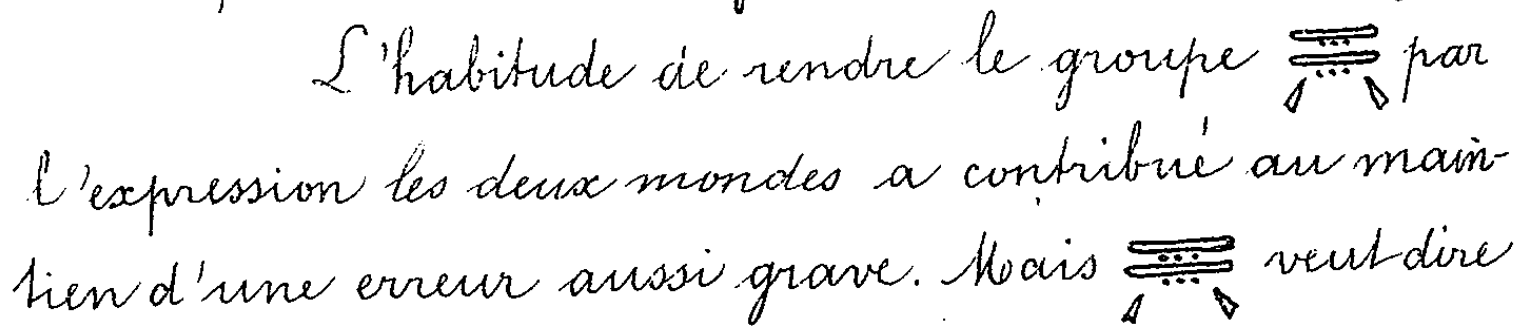 L'habitude de rendre le groupe 𓇿𓇿 par
l'expression les deux mondes a contribué au main-
tien d'une erreur aussi grave. Mais 𓇿𓇿 veut dire